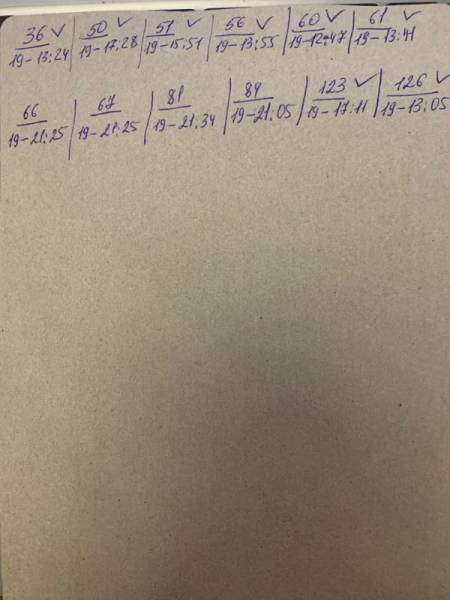 36 ✓ | 50 ✓ | 51 ✓ | 56 ✓ | 60 ✓ | 61 ✓
19-13:24 | 19-17:28 | 19-15:51 | 19-13:55 | 19-12:47 | 19-13:41
66 | 67 | 81 | 84 | 123 ✓ | 126 ✓
19-21:25 | 19-21:25 | 19-21:34 | 19-21:05 | 19-17:11 | 19-13:05